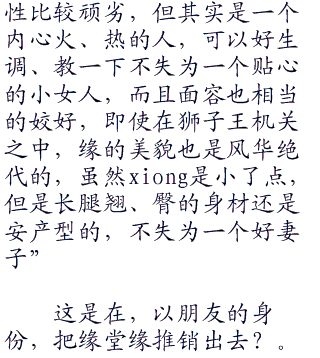 性比较顽劣，但其实是一个
内心火、热的人，可以好生
调、教一下不失为一个贴心
的小女人，而且面容也相当
的姣好，即使在狮子王机关
之中，缘的美貌也是风华绝
代的，虽然xiong是小了点，
但是长腿翘、臀的身材还是
安产型的，不失为一个好妻
子”
这是在，以朋友的身
份，把缘堂缘推销出去？。